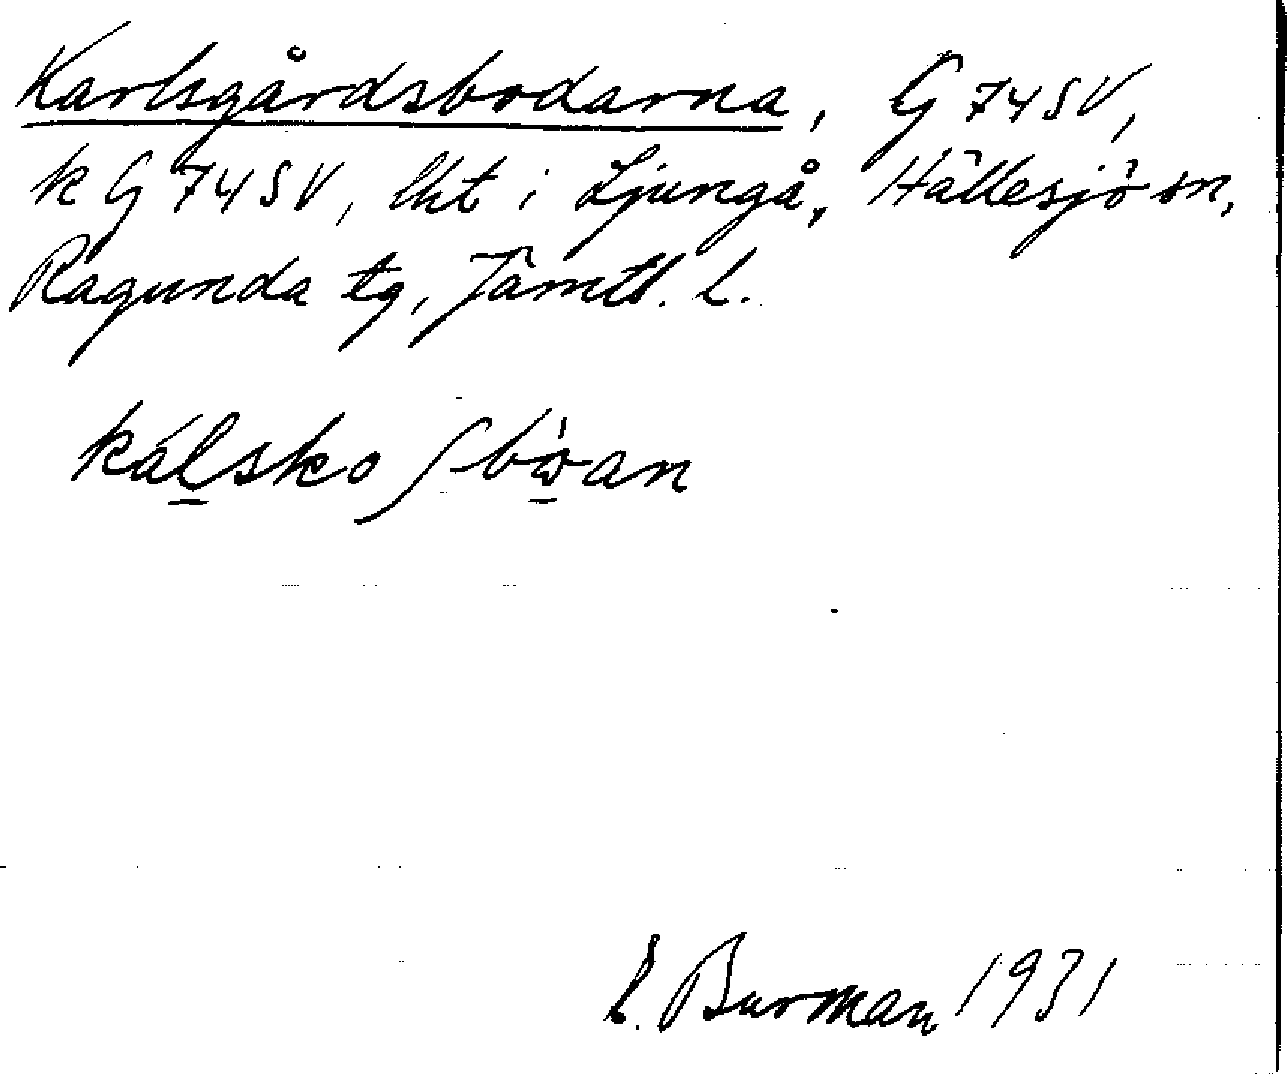 Karlsgårdsbodarna, G 74 SV,
k G 74 SV, lht i Ljungå, Hällesjö sn,
Ragunda tg, Jämtl. l.
kálskoʃbòan
E. Burman 1931